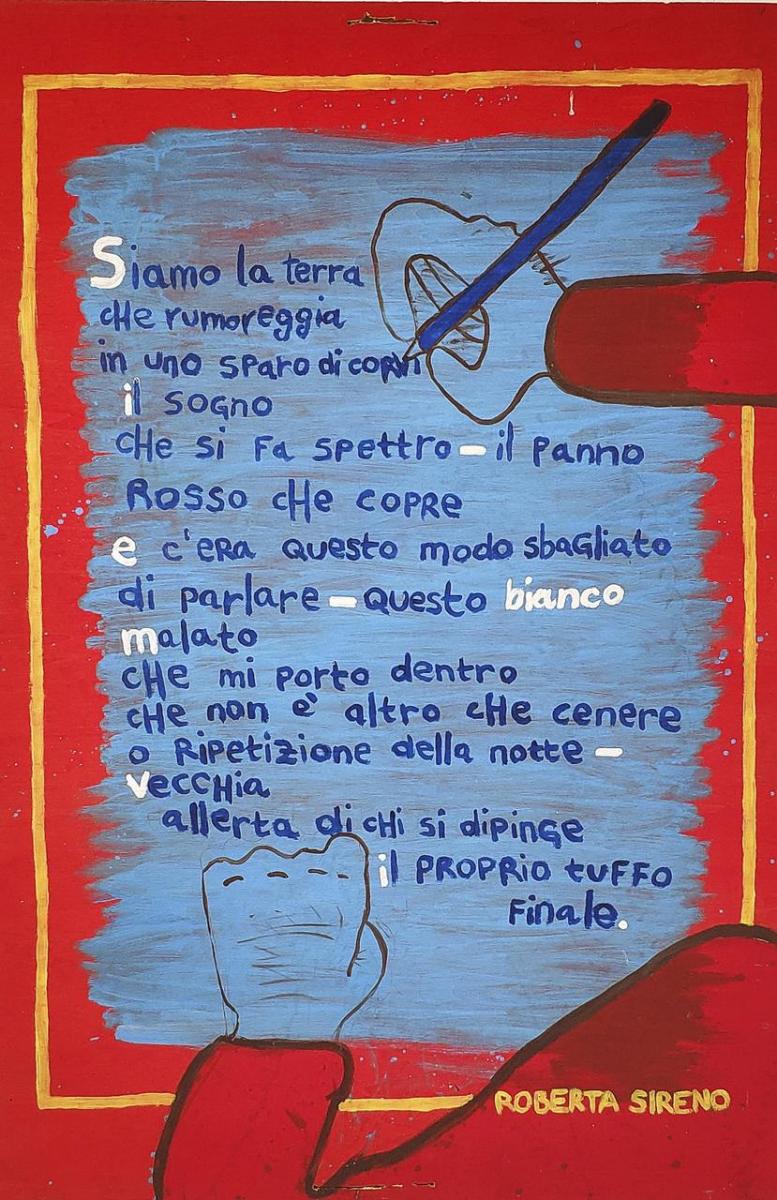 Siamo la terra
che rumoreggia
in uno sparo di corvi
il sogno
che si fa spettro – il panno
Rosso che copre
e c'era questo modo sbagliato
di parlare – questo bianco
malato
che mi porto dentro
che non è altro che cenere
o Ripetizione della notte –
vecchia
allerta di chi si dipinge
il proprio tuffo
finale.
ROBERTA SIRENO